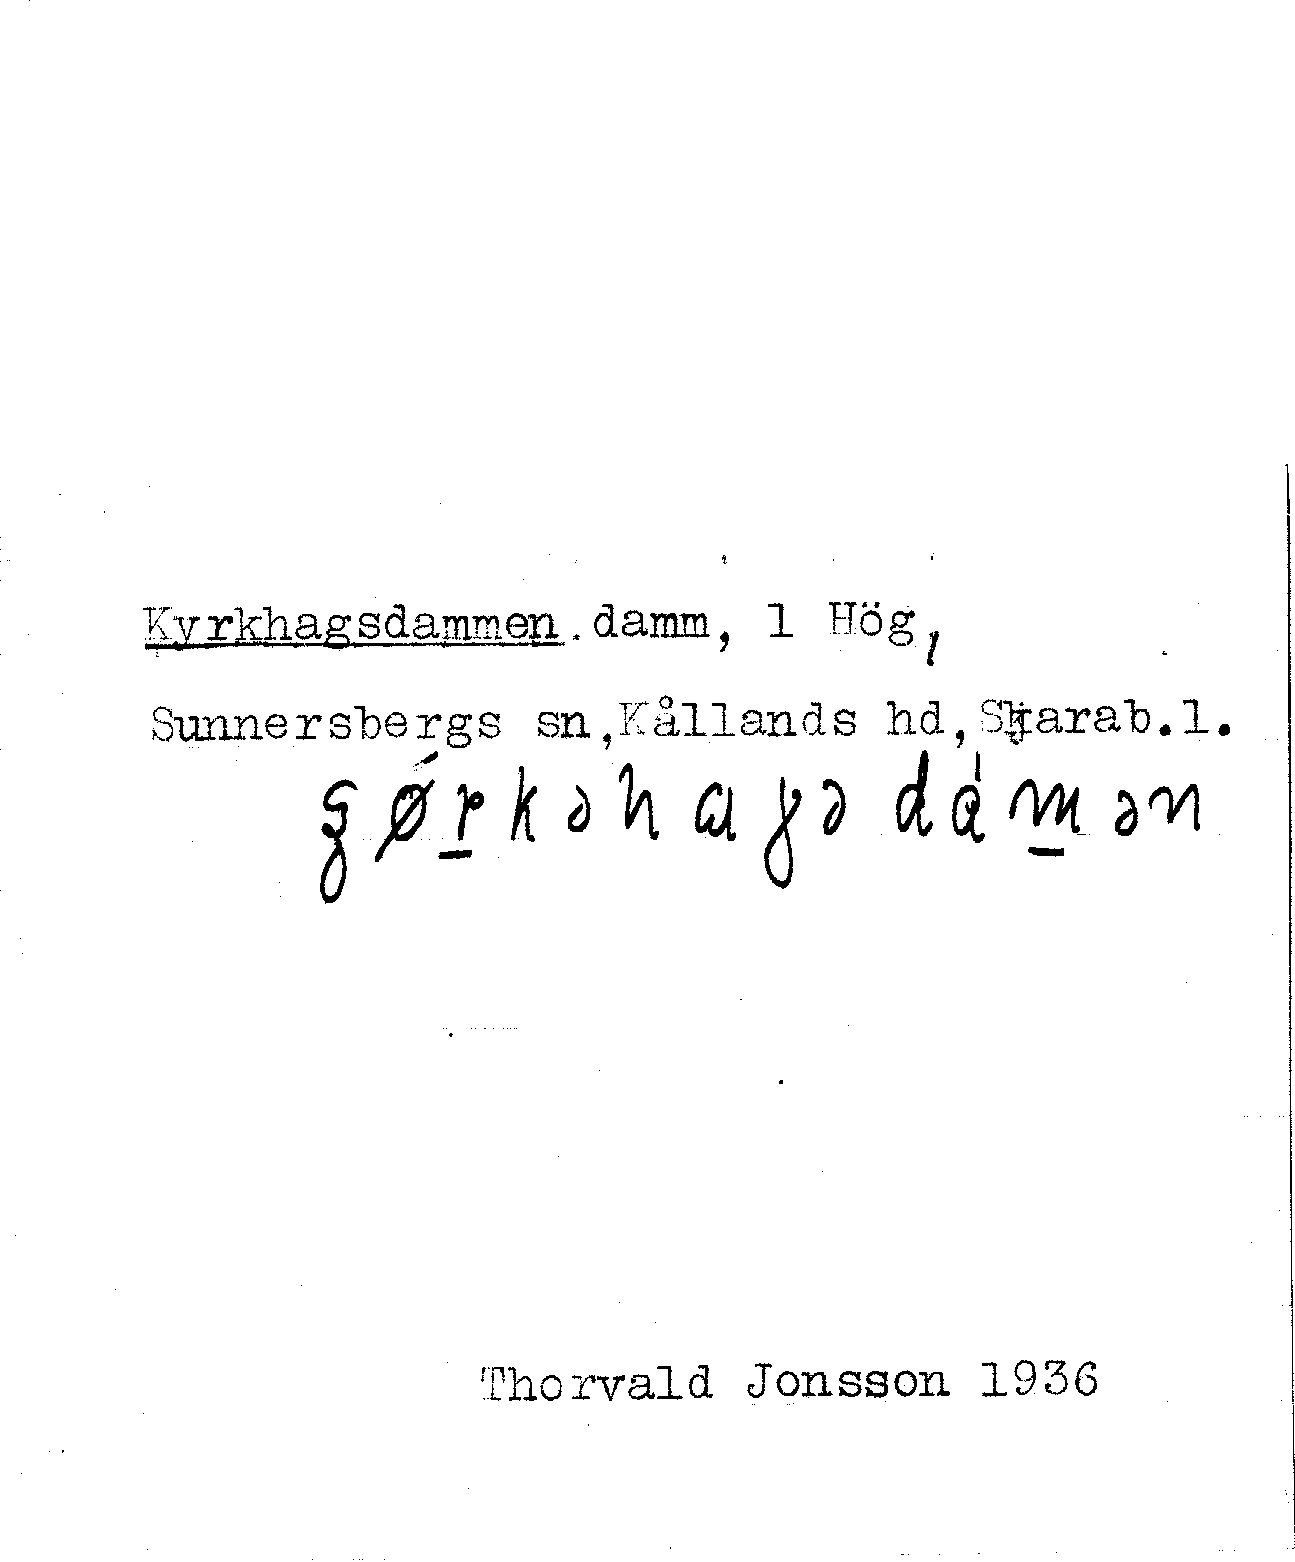 Kyrkhagsdammen. damm, 1 Hög,
Sunnersbergs sn, Kållands hd, Skarab.l.
ʂǿr̲kəhaɣədȧm̲ən
Thorvald Jonsson 1936